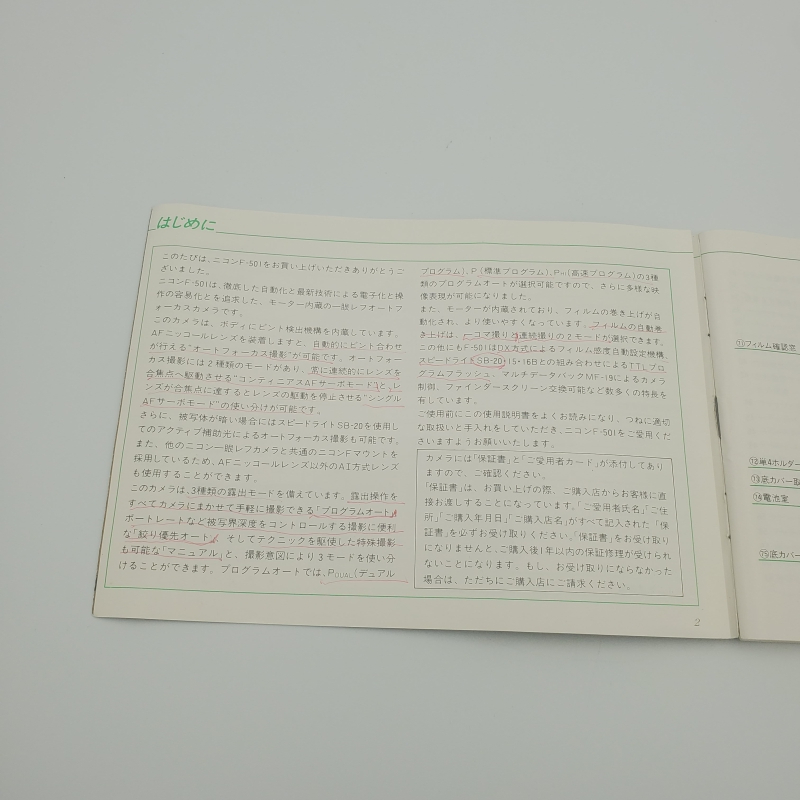 はじめに
このたびは、ニコンF-501をお買い上げいただきありがとうご
ざいました。
ニコンF-501は、徹底した自動化と最新技術による電子化と操
作の容易化とを追求した、モーター内蔵の一眼レフオートフ
ォーカスカメラです。
このカメラは、ボディにピント検出機構を内蔵しています。
AFニッコールレンズを装着しますと、自動的にピント合わせ
が行える“オートフォーカス撮影”が可能です。オートフォー
カス撮影には2種類のモードがあり、常に連続的にレンズを
合焦点へ駆動させる“コンティニアスAFサーボモード”と、レ
ンズが合焦点に達するとレンズの駆動を停止させる“シングル
AFサーボモード”の使い分けが可能です。
さらに、被写体が暗い場合にはスピードライトSB-20を使用し
てのアクティブ補助光によるオートフォーカス撮影も可能です。
また、他のニコン一眼レフカメラと共通のニコンFマウントを
採用しているため、AFニッコールレンズ以外のAI方式レンズ
も使用することができます。
このカメラは、3種類の露出モードを備えています。露出操作を
すべてカメラにまかせて手軽に撮影できる「プログラムオート」、
ポートレートなど被写界深度をコントロールする撮影に便利
な「絞り優先オート」、そしてテクニックを駆使した特殊撮影
も可能な「マニュアル」と、撮影意図により3モードを使い分
けることができます。プログラムオートでは、PDUAL(デュアル
プログラム)、P(標準プログラム)、PHI(高速プログラム)の3種
類のプログラムオートが選択可能ですので、さらに多様な映
像表現が可能になりました。
また、モーターが内蔵されており、フィルムの巻き上げが自
動化され、より使いやすくなっています。フィルムの自動巻
き上げは、一コマ撮りと連続撮りの2モードが選択できます。
この他にもF-501はDX方式によるフィルム感度自動設定機構、
スピードライトSB-20、15・16Bとの組み合わせによるTTLプロ
グラムフラッシュ、マルチデータバックMF-19によるカメラ
制御、ファインダースクリーン交換可能など数多くの特長を
有しています。
ご使用前にこの使用説明書をよくお読みになり、つねに適切
な取扱いと手入れをしていただき、ニコンF-501をご愛用くだ
さいますようお願いいたします。
カメラには「保証書」と「ご愛用者カード」が添付してあり
ますので、ご確認ください。
「保証書」は、お買い上げの際、ご購入店からお客様に直
接お渡しすることになっています。「ご愛用者氏名」「ご住
所」「ご購入年月日」「ご購入店名」がすべて記入された「保
証書」を必ずお受け取りください。「保証書」をお受け取り
になりませんと、ご購入後1年以内の保証修理が受けられ
ないことになります。もし、お受け取りにならなかった
場合は、ただちにご購入店にご請求ください。
2
⑪フィルム確認窓
⑫単4ホルダー
⑬底カバー取
⑭電池室
⑮底カバー